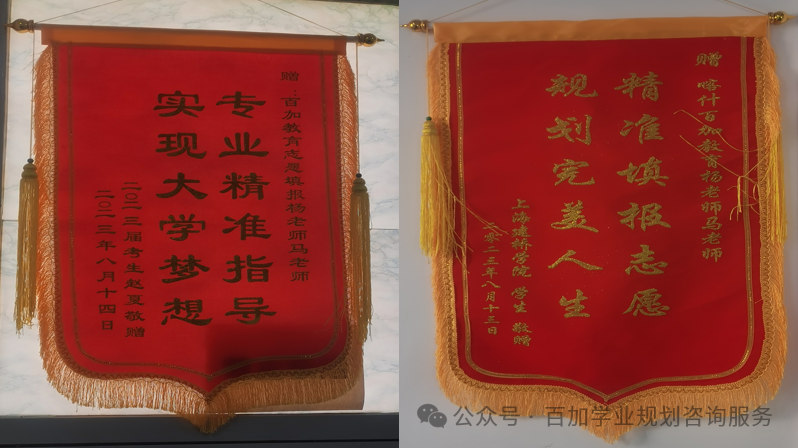 赠：百加教育志愿填报杨老师马老师
专业精准指导
实现大学梦想
二〇二三届考生赵夏敬赠
二〇二三年八月十四日
赠 喀什百加教育杨老师马老师
精准填报志愿
规划完美人生
上海建桥学院 学生 敬赠
二〇二三年八月十三日
公众号·百加学业规划咨询服务